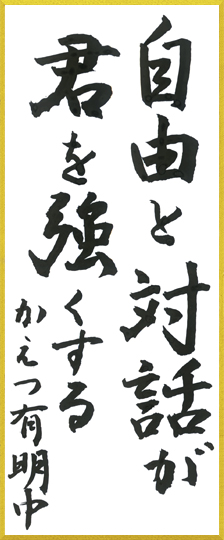 自由と対話が
君を強くする
かえつ有明中